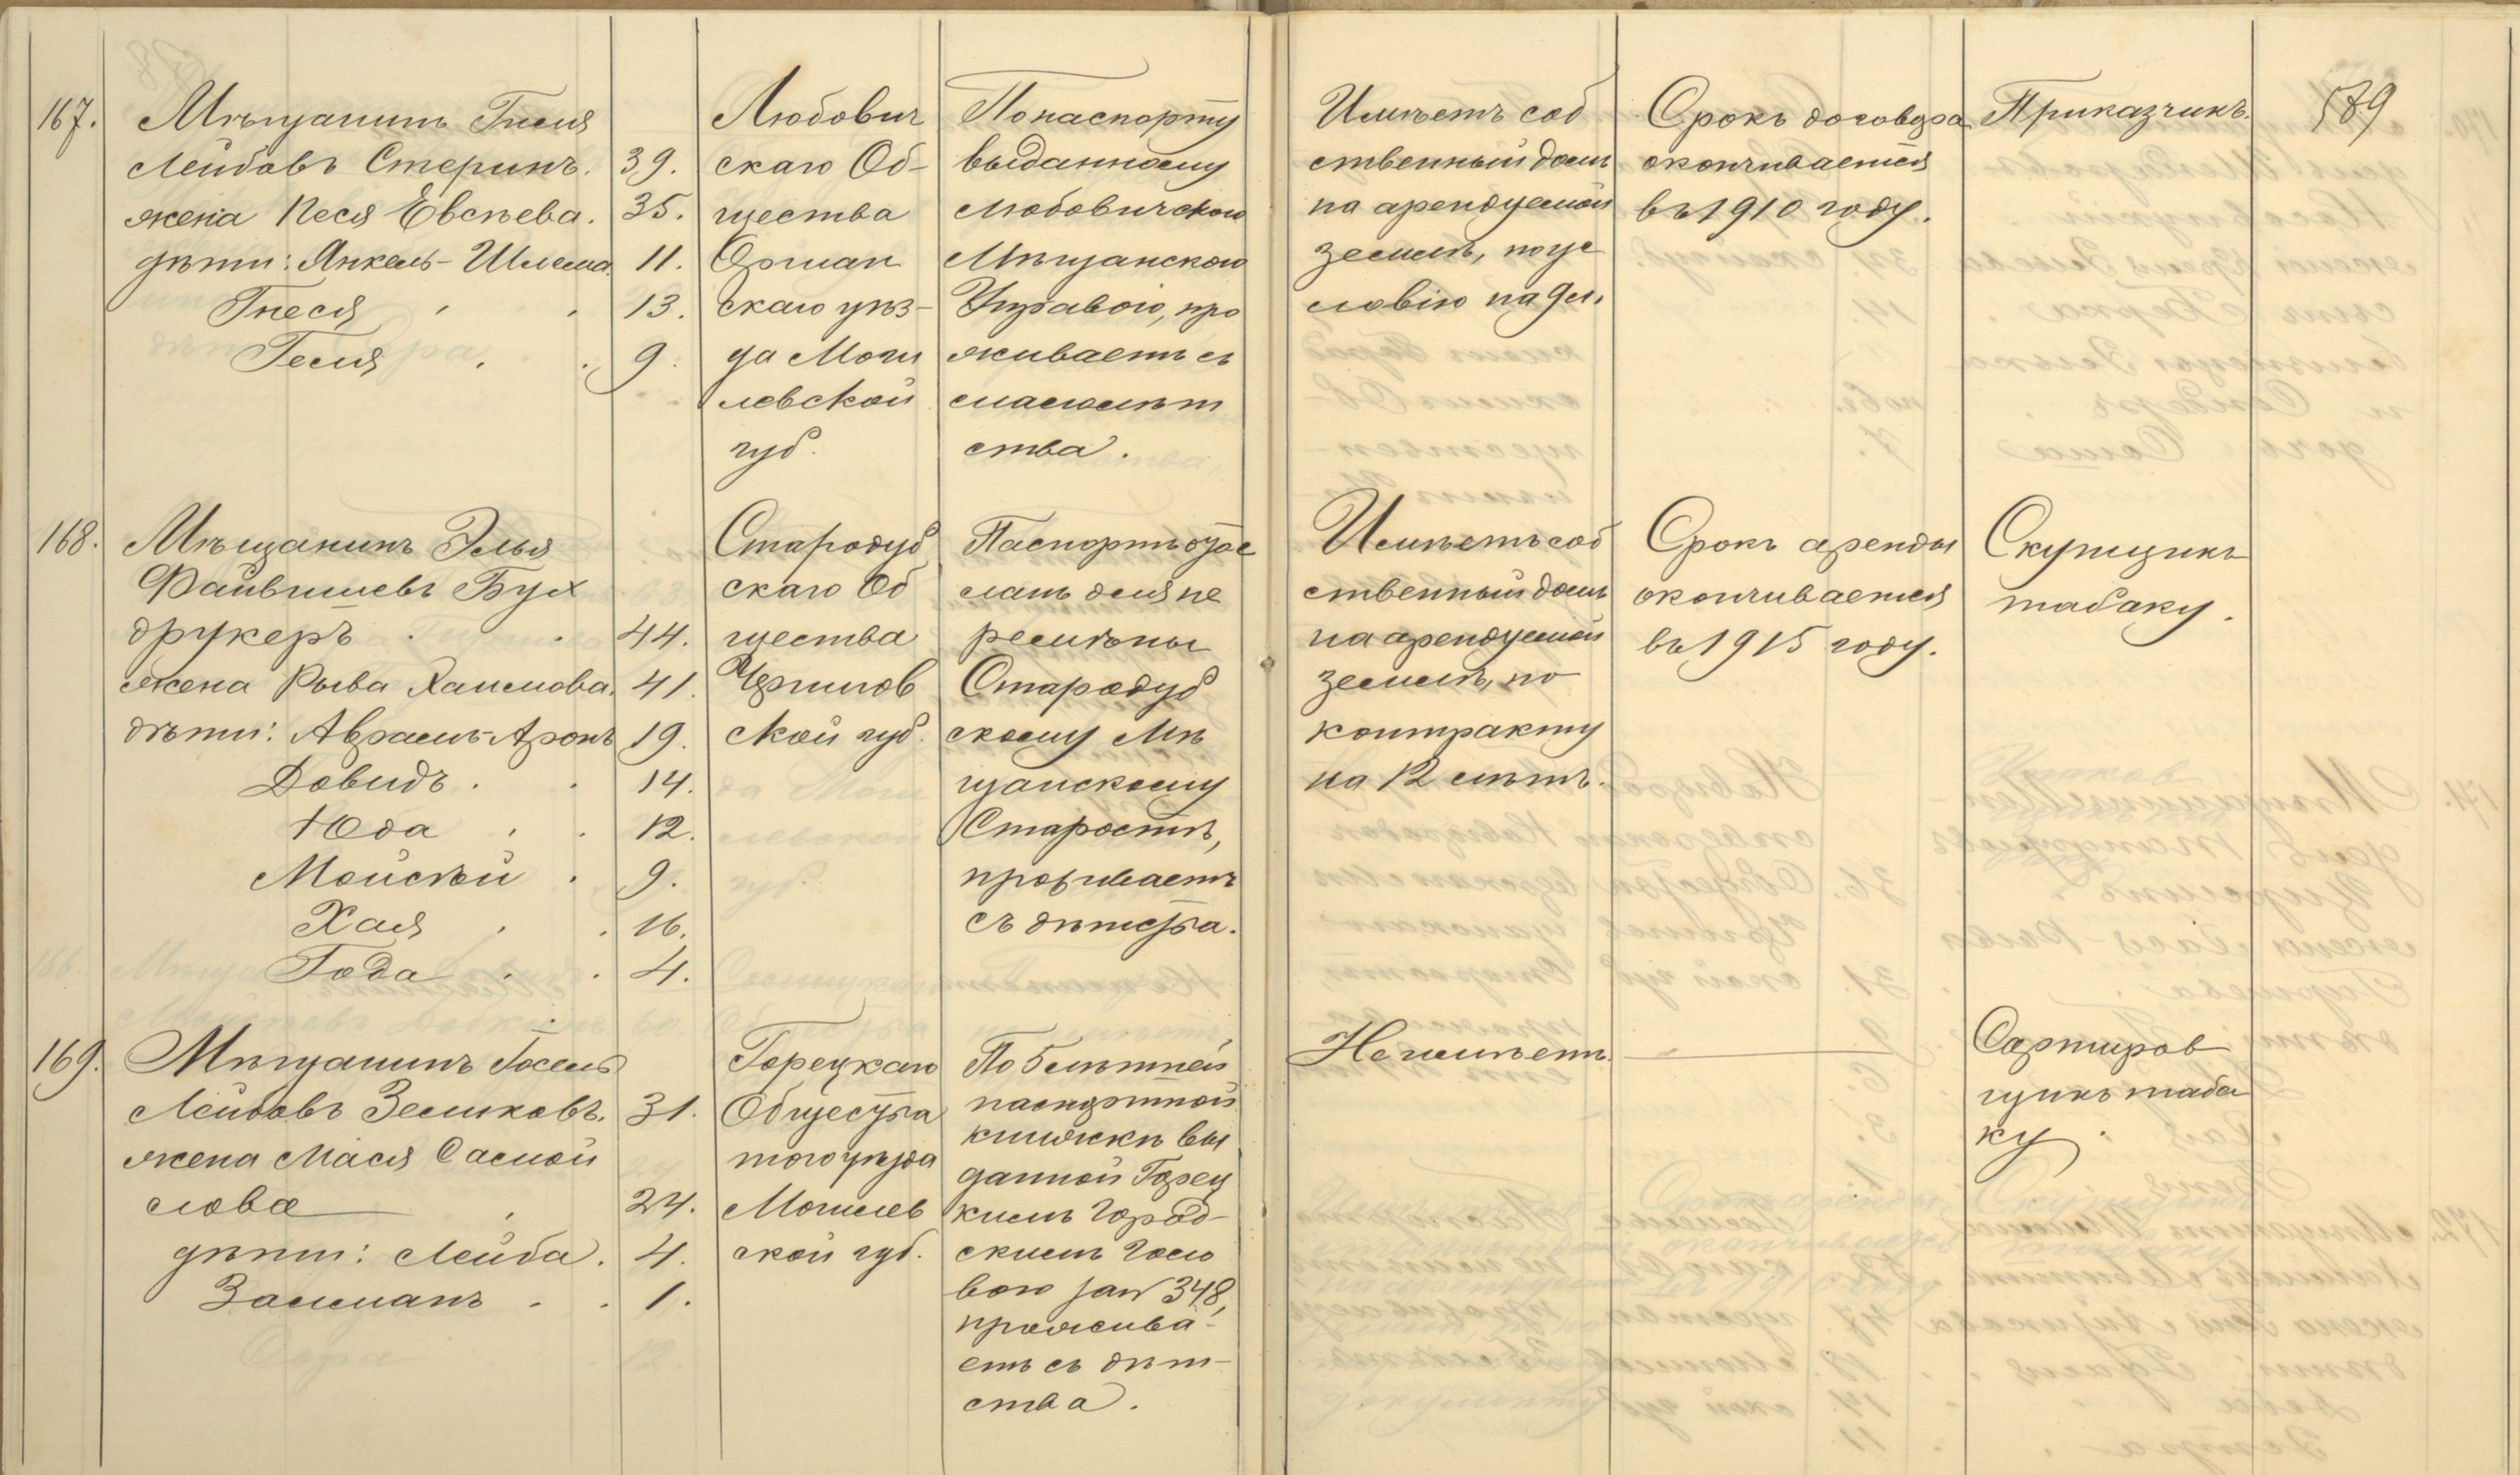 167.
Мѣщанинъ
Лейбовъ Стеринъ. 39.
жена Песя Евсѣева. 35.
дѣти: Янкель-Шлема 11.
Гнеся 13.
Геся 9.
Любович
скаго Об-
щества
Оршан
скаго уѣз-
да Моги
левской
губ.
По паспорту
выданному
Любовичскою
Мѣщанскою
Управою, про
живаетъ съ
малолѣт
ства.
Имѣетъ соб
ственный домъ
на арендуемой
землѣ, по ус
ловію на 9 л.
Срокъ договора
окончивается
въ 1910 году.
Приказчикъ.
589
168.
Мѣщанинъ Элья
Файвишевъ Бух
друкеръ 44.
жена Рыва Хаимова. 41.
дѣти: Авраамъ-Аронъ 19.
Довидъ 14.
Юда 12.
Мойсѣй 9.
Хая 16.
Года 4.
Стародуб
скаго Об
щества
Чернигов
ской губ.
Паспортъ
сланъ для пе
ремѣны
Стародуб
скому Мѣ
щанскому
Старостѣ,
проживаетъ
съ дѣтства.
Имѣетъ соб
ственный домъ
на арендуемой
землѣ, по
контракту
на 12 лѣтъ.
Срокъ аренды
окончивается
въ 1915 году.
Скупщикъ
табаку.
169.
Мѣщанинъ
Лейбовъ Зеликовъ. 31.
жена Мася Самой
лова 24.
дѣти: Лейба. 4.
Залманъ 1.
Горецкаго
Общества
того уѣзда
Могилев
ской губ.
По 5 лѣтней
паспортной
книжкѣ вы
данной Горец
кимъ Город-
скимъ Голо
вою за № 348,
прожива-
етъ съ дѣт-
ства.
Не имѣетъ.
Сортиров
щикъ таба
ку.